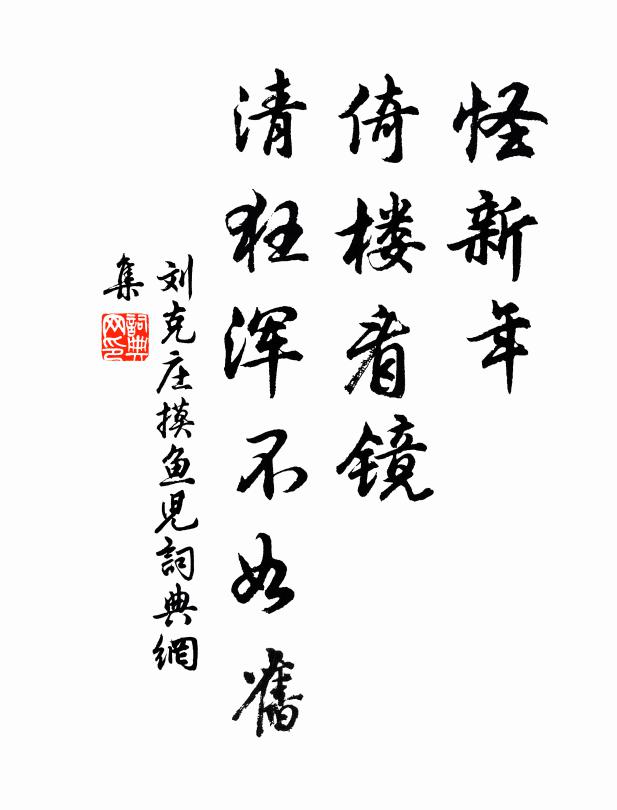 怪新年
倚楼看镜
清狂浑不如舊
刘克庄摸鱼児詞典網
集
詞典
网印